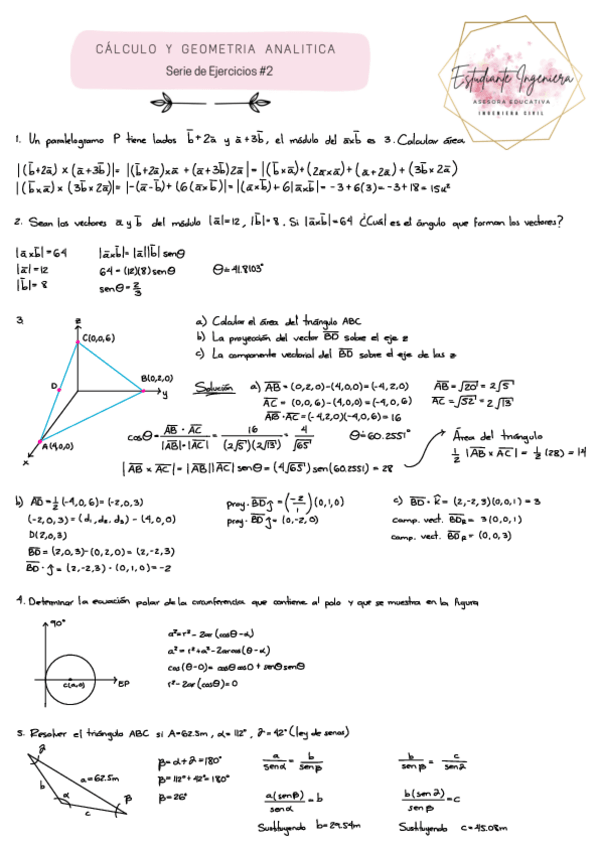 CÁLCULO Y GEOMETRIA ANALITICA
Serie de Ejercicios #2
Estudiante Ingeniera
ASESORA EDUCATIVA
INGENIERA CIVIL
1. Un paralelogramo P tiene lados b̄+2ā y ā+3b̄, el módulo del āxb̄ es 3. Calcular área
|(b̄+2ā) × (ā+3b̄)| = |(b̄+2ā)×ā + (ā+3b̄)2ā| = |(b̄×ā)+(2ā×ā) + (ā+2ā) + (3b̄×2ā)
|(b̄×ā) × (3b̄×2ā)| = |-(ā-b̄)+(6(ā×b̄)| = |(a×b)+6|ā×b̄| = -3+6(3) = -3+18 = 15u²
2. Sean los vectores ā y b̄ del módulo |ā|=12, |b̄|=8. Si |ā×b̄|=64 ¿Cuál es el ángulo que forman los vectores?
|ā×b̄|=64 |ā×b̄|=|ā||b̄| senθ
|ā|=12 64=(12)(8)senθ θ=41.8103°
|b̄|=8 senθ=2/3
3.
z
C(0,0,6)
B(0,2,0)
y
D
A(4,0,0)
x
a) Calcular el área del triángulo ABC
b) La proyección del vector BD sobre el eje z
c) La componente vectorial del BD sobre el eje de las z
Solución a) AB = (0,2,0)-(4,0,0)=(-4,2,0) AB=√20 = 2√5
AC = (0,0,6)-(4,0,0)=(-4,0,6) AC=√52 = 2√13
AB·AC=(-4,2,0)(-4,0,6)=16
cosθ= AB·AC/|AB|=|AC| = 16/(2√5)(2√13) = 4/√65 θ=60.2551°
Área del triángulo
1/2 |AB×AC| = 1/2(28) = 14
|AB×AC|=|AB||AC| senθ = (4√65) sen(60.2551) = 28
b) AD=1/2(-4,0,6)=(-2,0,3)
(-2,0,3)=(d₁,d₂,d₃) - (4,0,0)
D(2,0,3)
BD = (2,0,3)-(0,2,0) = (2,-2,3)
BD·j = (2,-2,3)·(0,1,0)=-2
proy.BDj = (-2/1)(0,1,0)
proy.BDj = (0,-2,0)
c) BD·k = (2,-2,3)(0,0,1) = 3
comp. vect. BDk = 3(0,0,1)
comp. vect. BDk = (0,0,3)
4. Determinar la ecuación polar de la circunferencia que contiene al polo y que se muestra en la figura
90°
C(a,0)
EP
a²=r²-2ar(cosθ-α)
a²=r²+a²-2arcos(θ-α)
cos(θ-0)=cosθcos0+senθsenθ
r²-2ar(cosθ)=0
5. Resolver el triángulo ABC si A=62.5m, α=112°, γ=42° (ley de senos)
γ
a=62.5m
b
α
β
c
β=α+γ=180°
β=112°+42°=180°
β=26°
a/senα = b/senβ
a(senβ)/senα = b
Sustituyendo b=29.54m
b/senβ = c/senγ
b(senγ)/senβ = c
Sustituyendo c=45.08m